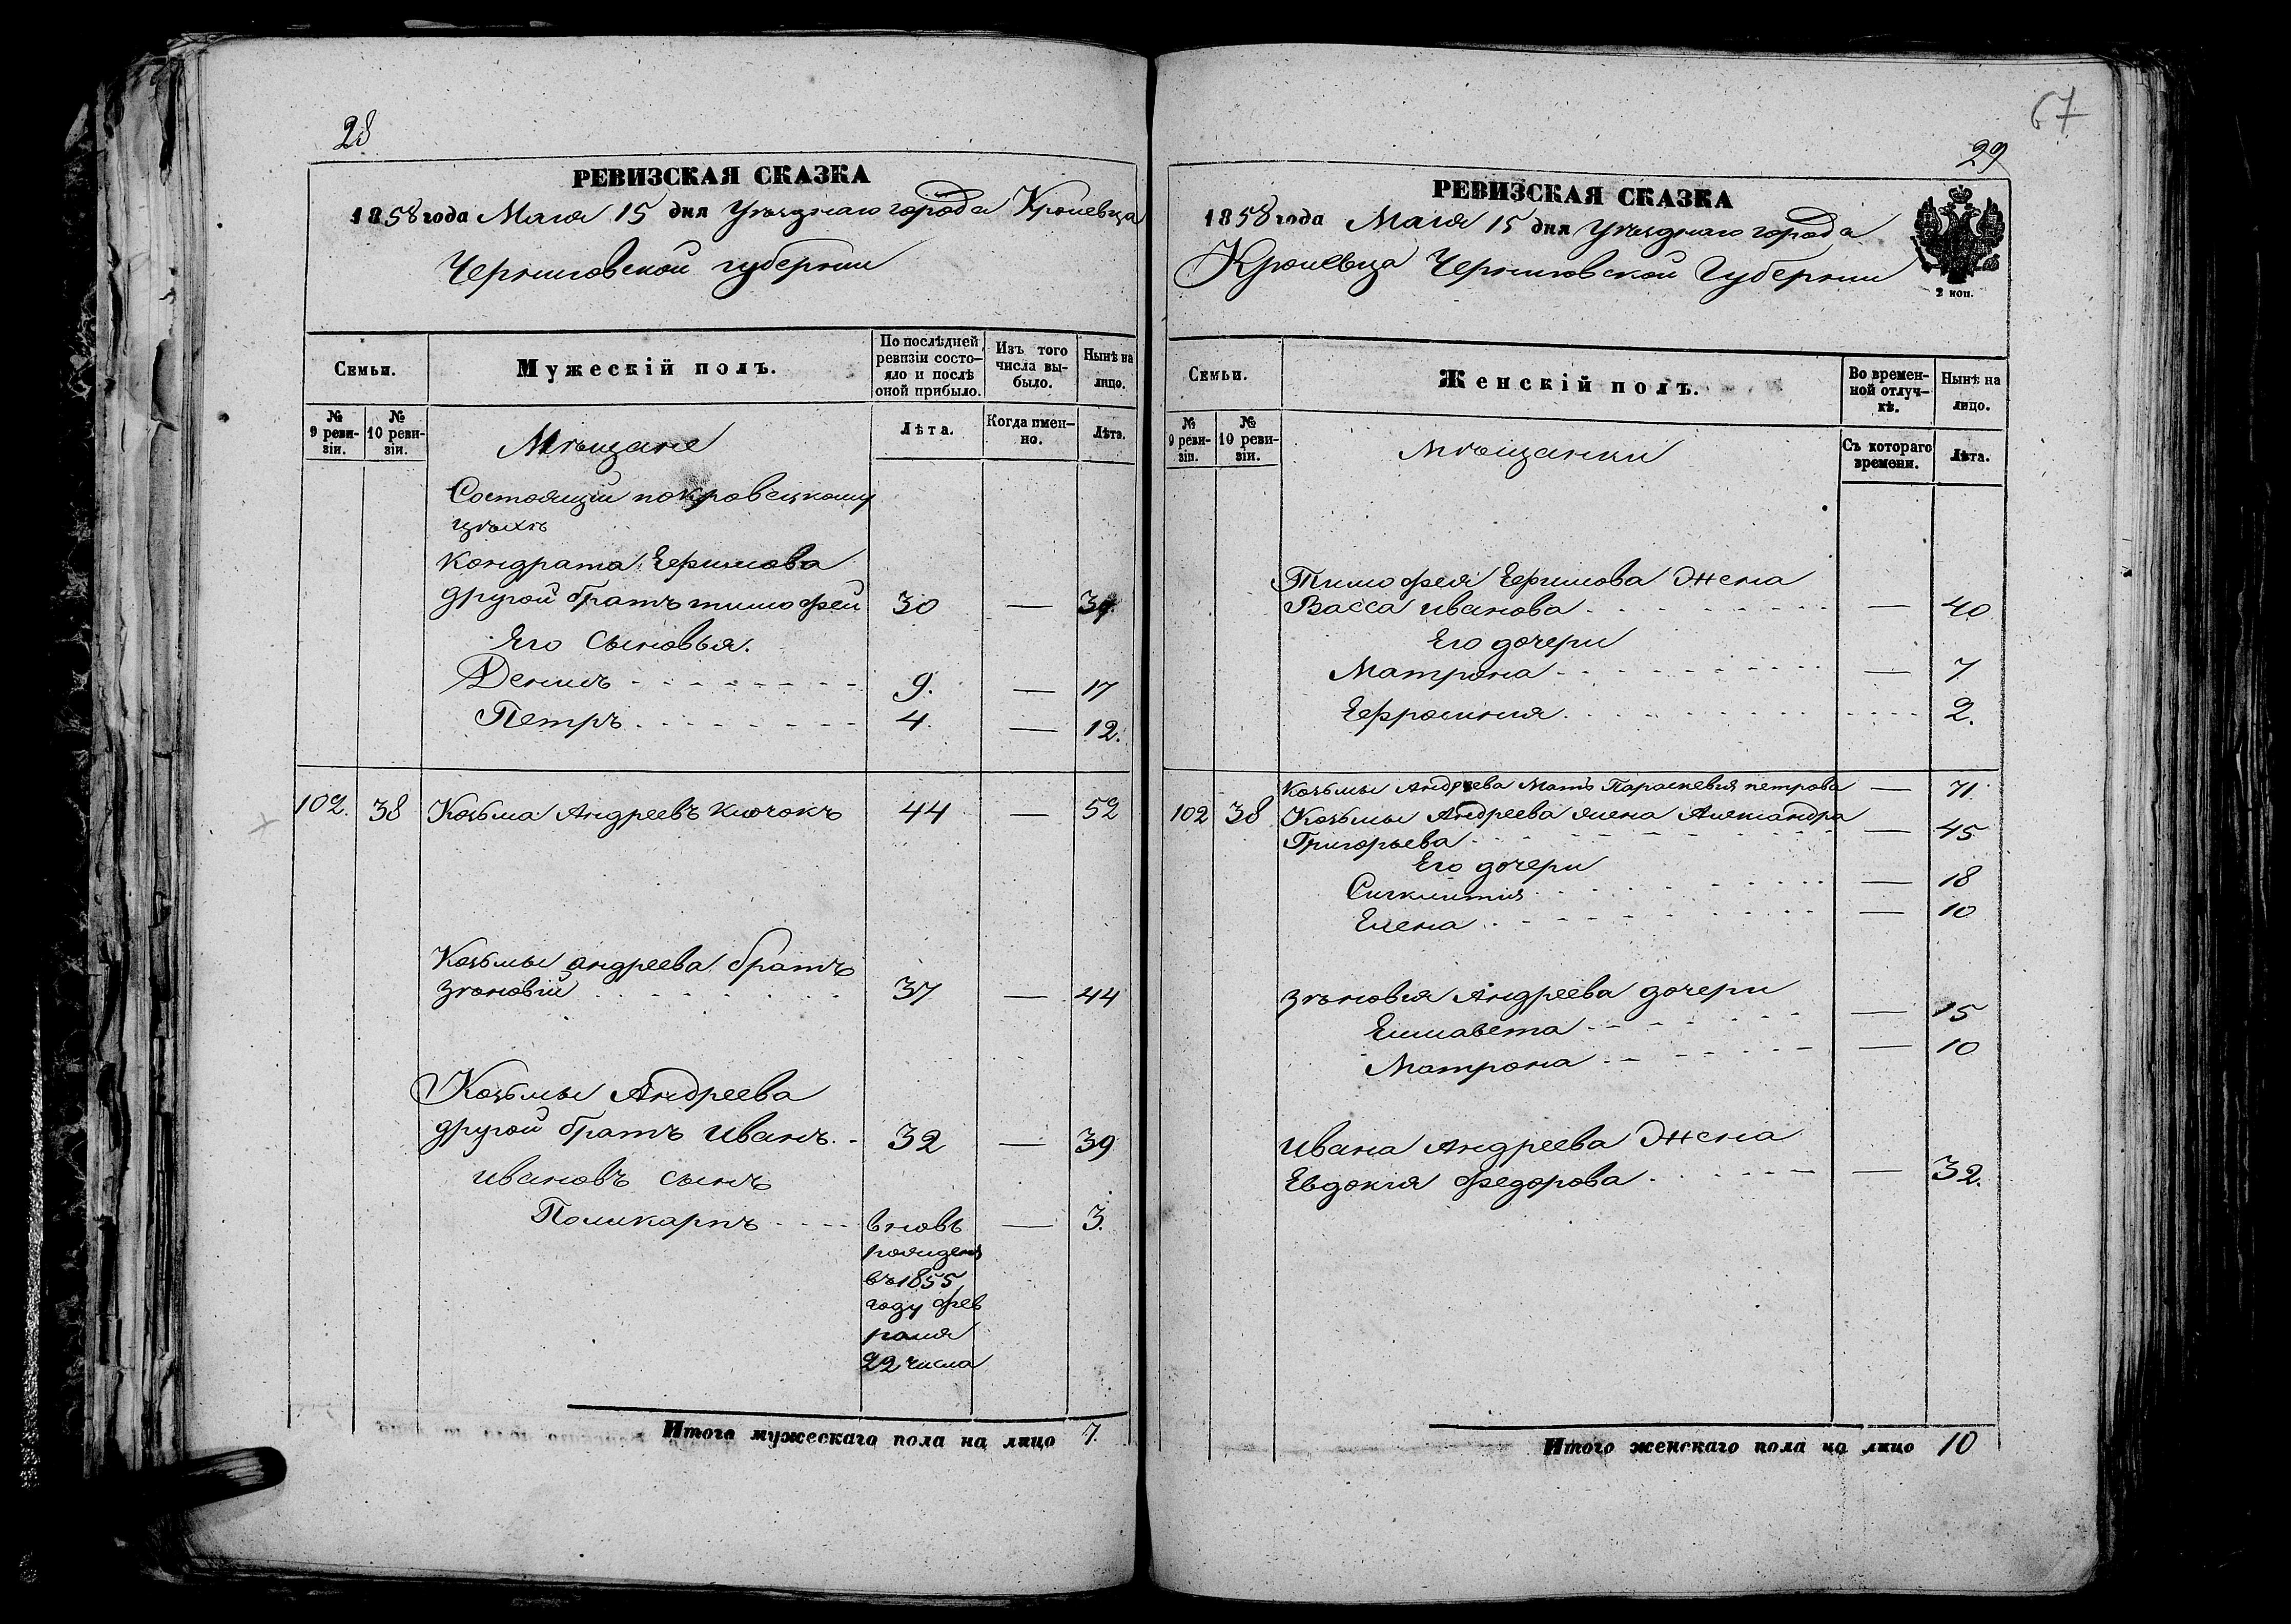 28
РЕВИЗСКАЯ СКАЗКА
1858 года Маія 15 дня Уѣзднаго города Кролевца
Черниговской губерніи
Семьи.
Мужескій полъ.
По послѣдней ревизіи состояло и послѣ оной прибыло.
Изъ того числа выбыло.
Нынѣ на лицо.
№ 9 ревизіи.
№ 10 ревизіи.
Мѣщане
Лѣта.
Когда именно.
Лѣта.
Состоящіи покровецкому
цѣхѣ
Кондрата Ефимова
другой братъ тимофей 30 —
Его Сыновья.
Денисъ 9. — 17
Петръ 4. — 12.
102. 38 Козьма Андреевъ Клочокъ 44 — 52
Козьмы андреева братъ
зѣновій 37 — 44
Козьмы Андреева
другой братъ иванъ 32 — 39
ивановъ сынъ
Поликарпъ вновь — 3.
рожденъ
въ 1855
году фев
раля
22 числа
Итого мужескаго пола на лицо 7.
67
29
РЕВИЗСКАЯ СКАЗКА
1858 года Маія 15 дня Уѣзднаго города
Кролевца Черниговской Губерніи
2 коп.
Семьи.
Женскій полъ.
Во временной отлучкѣ.
Нынѣ на лицо.
№ 9 ревизіи.
№ 10 ревизіи.
мѣщанки
Съ котораго времени.
Лѣта.
Тимофея Ефимова жена
Васса иванова — 40
Его дочери
Матрона — 7
Ефросинія 2.
Козьмы Андреева Мать Параскевія петрова — 71.
102 38 Козьмы Андреева жена Александра
Григорьева — 45
Его дочери
Сигклитія — 18
Елена — 10
зѣновія Андреева дочери
Елисавета — 15
Матрона — 10
ивана Андреева жена
Евдокія федорова — 32.
Итого женскаго пола на лицо 10